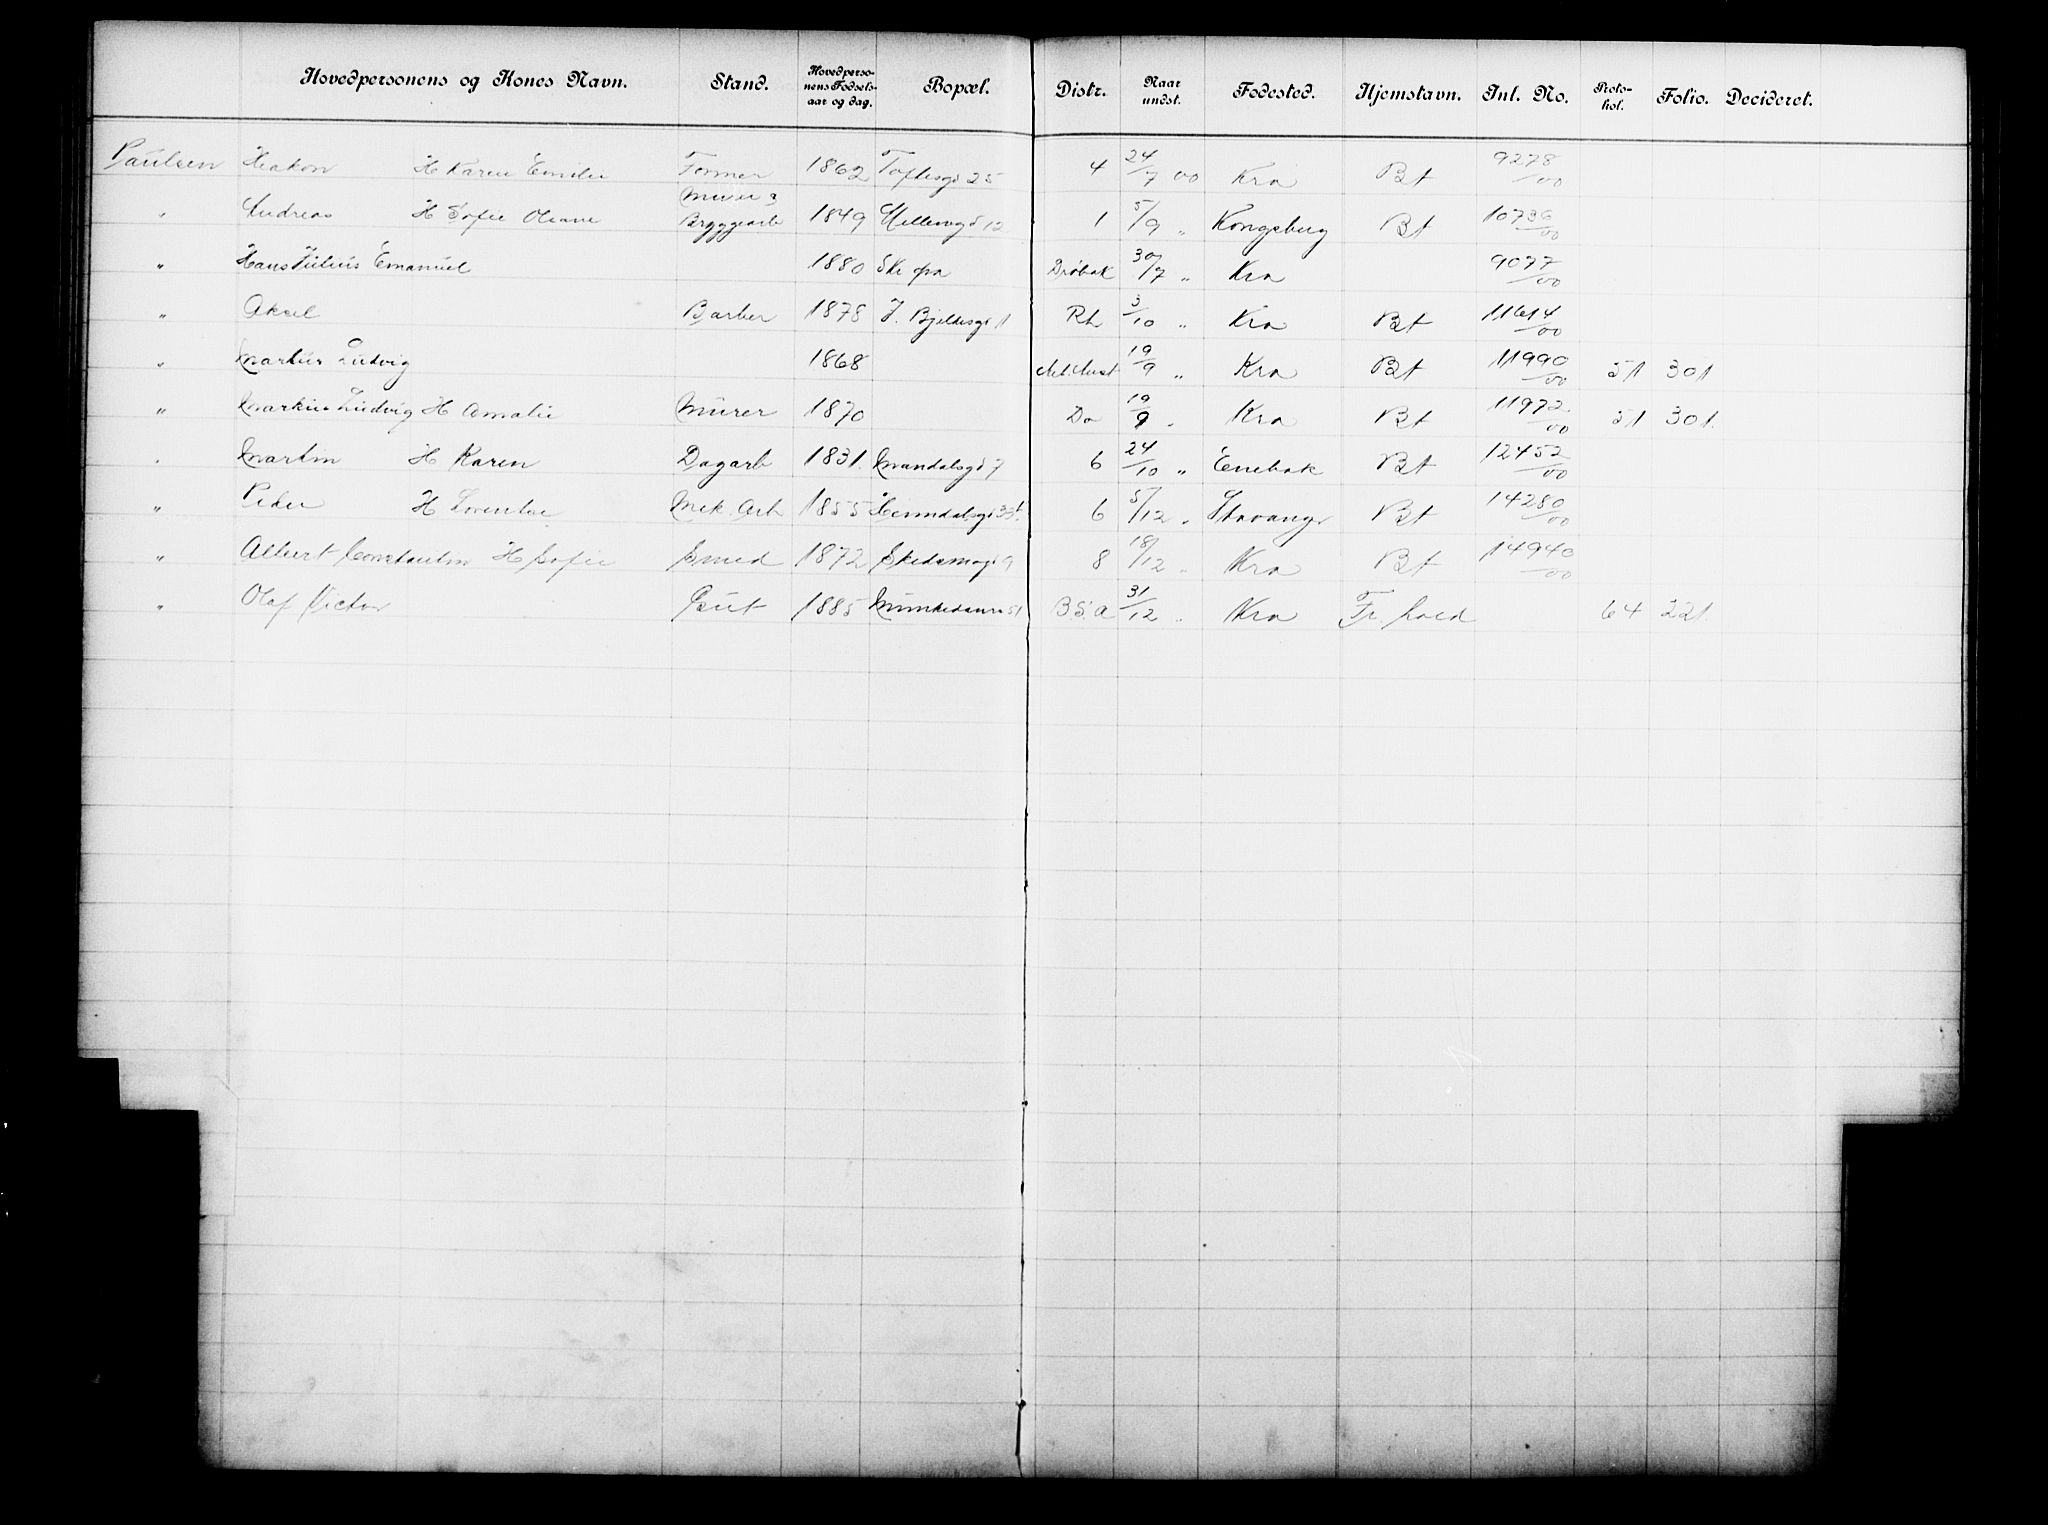 Hovedpersonens og Kones Navn. Stand. Hovedperso-nens Fødsels-aar og dag. Bopæl. Distr. Naar undst. Fødested. Hjemstavn. Inl. No. Proto-kol. Folio. Decideret.
Paulsen Haakon H Karen Emilie Former 1862 Toftesgd 25 4 24/7 00 Kra Bt 9278/00
" Andreas H Sofie Oleane Bryggearb 1849 Møllergd 12 1 5/9 " Kongsberg Bt 10736/00
" Hans Julius Emanuel 1880 Drøbak 30/7 " Kra 9077/00
" Aksel Barber 1878 J. Bjelkesgd 11 Rh 3/10 " Kra Bt 11614/00
" Markus Ludvig 1868 19/9 " Kra Bt 11990/00 51 301
" Markus Ludvig H Amalie Murer 1870 Do 19/9 " Kra Bt 11972/00 51 301.
" Martin H Karen Dagarb 1831. Mandalsgd 7 6 24/10 " Enebak Bt 12452/00
" Peder H Lorentse Mek. Arb 1855 Heimdalsgd 6 5/12 " Stavanger Bt 14280/00
" Albert Constantin H Sofie Smed 1872 Skedsmogd 9 8 18/12 " Kra Bt 14940/00
" Olaf Victor Gut 1885 Munkedamsv 51 B.S.a 31/12 " Kra Fr. hold 64 221.